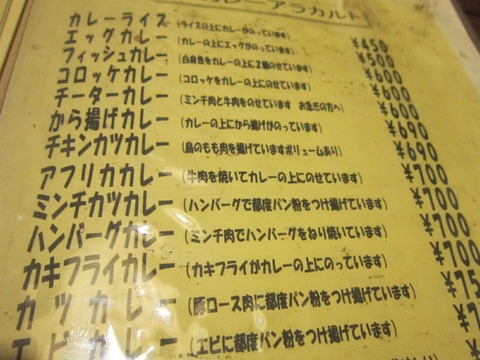 カレーアラカルト
カレーライス (ライスの上にカレーがのっています) ¥450
エッグカレー (カレーの上にエッグがのっています) ¥500
フィッシュカレー (白身魚をカレーの上に2個のせています) ¥600
コロッケカレー (コロッケをカレーの上にのせています) ¥600
チーターカレー (ミンチ肉と牛肉をのせています お急ぎの方へ) ¥600
から揚げカレー (カレーの上にから揚げがのっています) ¥690
チキンカツカレー (鳥のもも肉を揚げていますボリュームあり) ¥690
アフリカカレー (牛肉を焼いてカレーの上にのせています) ¥700
ミンチカツカレー (ハンバーグで都度パン粉をつけ揚げています) ¥700
ハンバーグカレー (ミンチ肉でハンバーグをねり焼いています) ¥700
カキフライカレー (カキフライがカレーの上にのっています) ¥700
カツカレー (豚ロース肉に都度パン粉をつけ揚げています) ¥75
エビカレー (エビに都度パン粉をつけ揚げています)